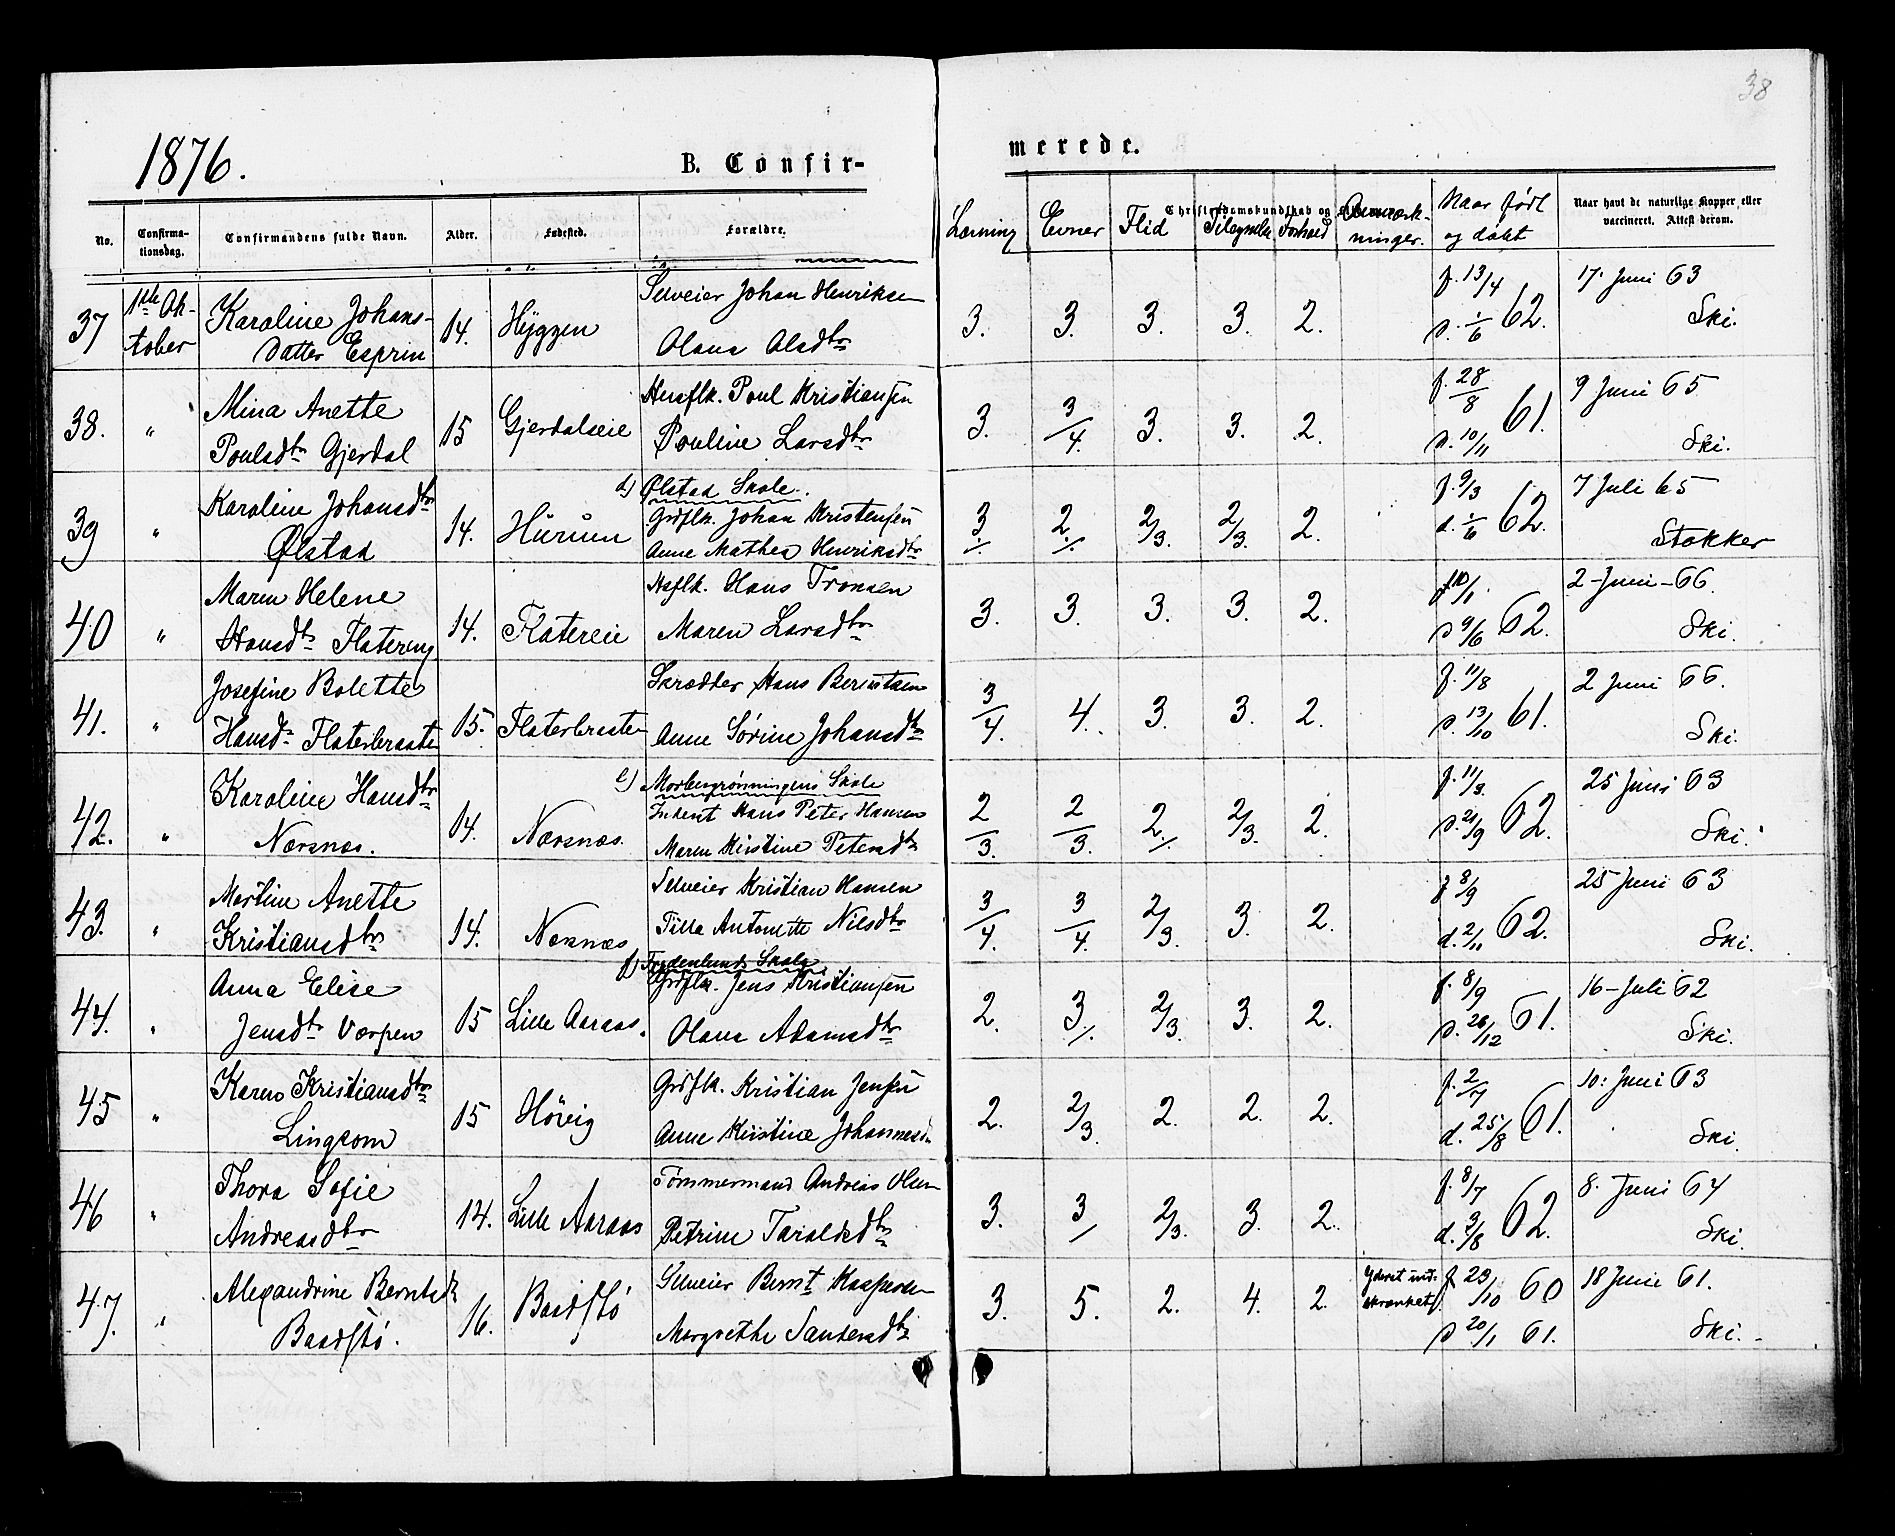 38
1876.
B. Confir-
merede.
No.
Confirma-
tionsdag.
Confirmandens fulde Navn.
Alder.
Fødested.
Forældre.
Lærning
Evner
Flid
Christendomskundskab og
Tilegnelse
Forhold
Anmærk-
ninger.
Naar født
og døbt
Naar havt de naturlige Kopper eller
vaccineret. Attest derom.
37
1ste Ok-
tober
Karoline Johans-
Datter Esprim
14.
Hyggen
Selveier Johan Henriksen
Olava Olsdtr
3. 3. 3. 3. 2.
f. 13/4
d. 1/6 62.
17. Juni 63
Ski.
38.
"
Mina Anette
Poulsdtr Gjerdal
15
Gjerdalseie
Husflk. Poul Kristiansen
Pouline Larsdtr
3. 3/4. 3. 3. 2.
f. 28/8
d. 10/11 61.
9 Juni 65
Ski.
39
"
Karoline Johansdtr
Ølstad
14.
Hurum
d) Ølstad Skole.
Grdflk. Johan Kristensen
Anne Mathea Henriksdtr
3/. 2/. 2/3. 2/3. 2.
f. 9/3
d. 1/6 62.
7 Juli 65
Stokker
40
"
Maren Helene
Hansdtr Flatereng
14.
Flatereie
Hsflk. Hans Tronsen
Maren Larsdtr
3. 3. 3. 3. 2.
f 10/1.
d 9/6 62.
2 - Juni - 66.
Ski.
41.
"
Josefine Bolette
Hansdtr Flaterbraaten
15.
Flaterbraaten
Skrædder Hans Berntsen
Anne Sørine Johansdtr
3/4. 4. 3. 3. 2.
f. 11/8
d. 13/10 61.
2 Juni 66.
Ski.
42.
"
Karoline Hansdtr
Nærsnæs.
14.
Nærsnæs.
e) Morbergrønningens Skole
Inderst Hans Peter Hansen
Maren Kirstine Petersdtr
2/3. 2/3. 2/. 2/3. 2.
f. 11/3.
d. 21/9 62.
25 Juni 63
Ski.
43.
"
Martine Anette
Kristiansdtr
14.
Nærsnæs
Selveier Kristian Hansen
Tilla Antonette Nilsdtr
3/4. 3/4. 2/3. 3. 2.
f 8/9
d. 2/11 62.
25 Juni 63
Ski.
44.
"
Anna Elise
Jensdtr Værpen
15
Lille Aaraas.
f) Frydenlunds Skole
Grdflk. Jens Kristiansen
Olava Adamsdtr
2. 3/. 2/3. 3. 2.
f. 8/9
d. 26/12 61.
16 - Juli 62
Ski.
45
"
Karen Kristiansdtr
Lingsom
15
Høvig
Grdflk. Kristian Jensen
Anne Kirstine Johannesd
2. 2/3. 2. 2. 2.
f. 2/7
d. 25/8 61.
10: Juni 63
Ski.
46
"
Thora Sofie
Andreasdtr
14.
Lille Aaraas
Tømmermand Andreas Olsen
Petrine Taraldsdtr
3. 3/ 2/3. 3. 2.
f. 8/7
d. 3/8 62.
8. Juni 64
Ski.
47.
"
Alexandrine Berntsd
Baadstø.
16.
Baadstø
Selveier Bernt Kaspersen
Margrethe Sandersdtr
3. 5. 2. 4. 2.
Yderst ind-
skrænket
f 23/10 60
d 20/1 61.
18 Juni 61.
Ski.